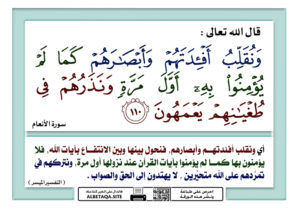 قال الله تعالى :
وَنُقَلِّبُ أَفْـِٔدَتَهُمْ وَأَبْصَٰرَهُمْ كَمَا لَمْ
يُؤْمِنُوا۟ بِهِۦٓ أَوَّلَ مَرَّةٍ وَنَذَرُهُمْ فِى
طُغْيَٰنِهِمْ يَعْمَهُونَ ١١٠
سورة الأنعام
أي ونقلب أفئدتهم وأبصارهم، فنحول بينها وبين الانتفاع بآيات الله، فلا
يؤمنون بها كما لم يؤمنوا بآيات القرآن عند نزولها أول مرة، ونتركهم في
تمردهم على الله متحيرين، لا يهتدون إلى الحق والصواب.
(التفسير الميسر)
ALBETAQA.SITE